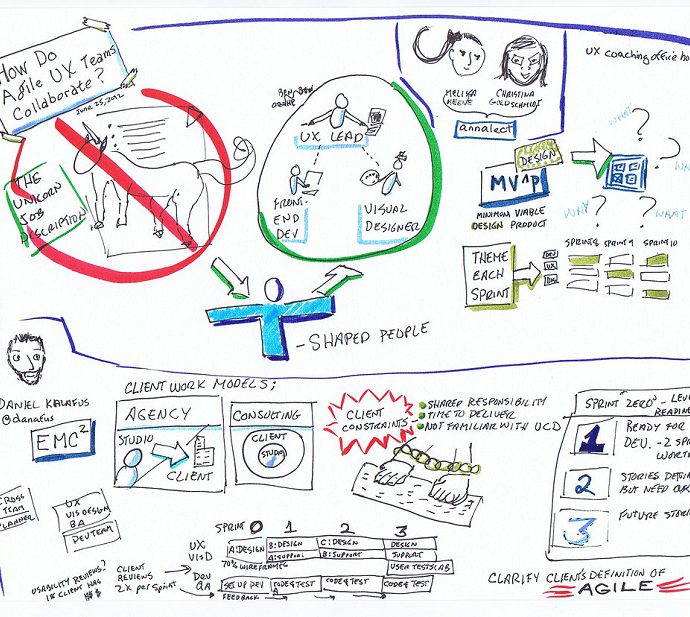 How Do
Agile UX Teams
Collaborate?
June 25, 2012
THE
UNICORN
JOB
DESCRIPTION
UX LEAD
FRONT-
END
DEV
VISUAL
DESIGNER
- SHAPED PEOPLE
MELISSA
KEENE
CHRISTINA
GOLDSCHMIDT
annalect
UX coaching office ho
DESIGN
MV^P
MINIMUM VIABLE
DESIGN PRODUCT
WHAT
?
?
WHY
?
?
WHAT
THEME
EACH
SPRINT
DEV
UX
SPRINT 8
SPRINT 9
SPRINT 10
DANIEL KALAFUS
@danafus
EMC²
CLIENT WORK MODELS;
AGENCY
STUDIO
CLIENT
CONSULTING
CLIENT
STUDIO
CLIENT
CONSTRAINTS
SHARED RESPONSIBILITY
TIME TO DELIVER
NOT FAMILIAR WITH UCD
SPRINT ZERO - LEV
READIN
1
READY FOR
DEV. - 2 SP
WORTH
2
STORIES DEF
BUT NEED
3
FUTURE STOR
CROSS
TEAM
PLANNER
UX
VIS DESIGN
BA
DEV TEAM
USABILITY REVIEWS?
IF CLIENT HAS
$$
CLIENT
REVIEWS
2X per sprint
UX
VISD
DEV
QA
SPRINT 0 1 2 3
A: DESIGN
B: DESIGN
C: DESIGN
DESIGN
A: SUPPORT
B: SUPPORT
SUPPORT
70% WIREFRAMES
USER TESTS LAB
SET UP DEV
CODE & TEST
A
CODE & TEST
CODE & TEST
FEEDBACK
CLARIFY CLIENT'S DEFINITION OF
AGILE